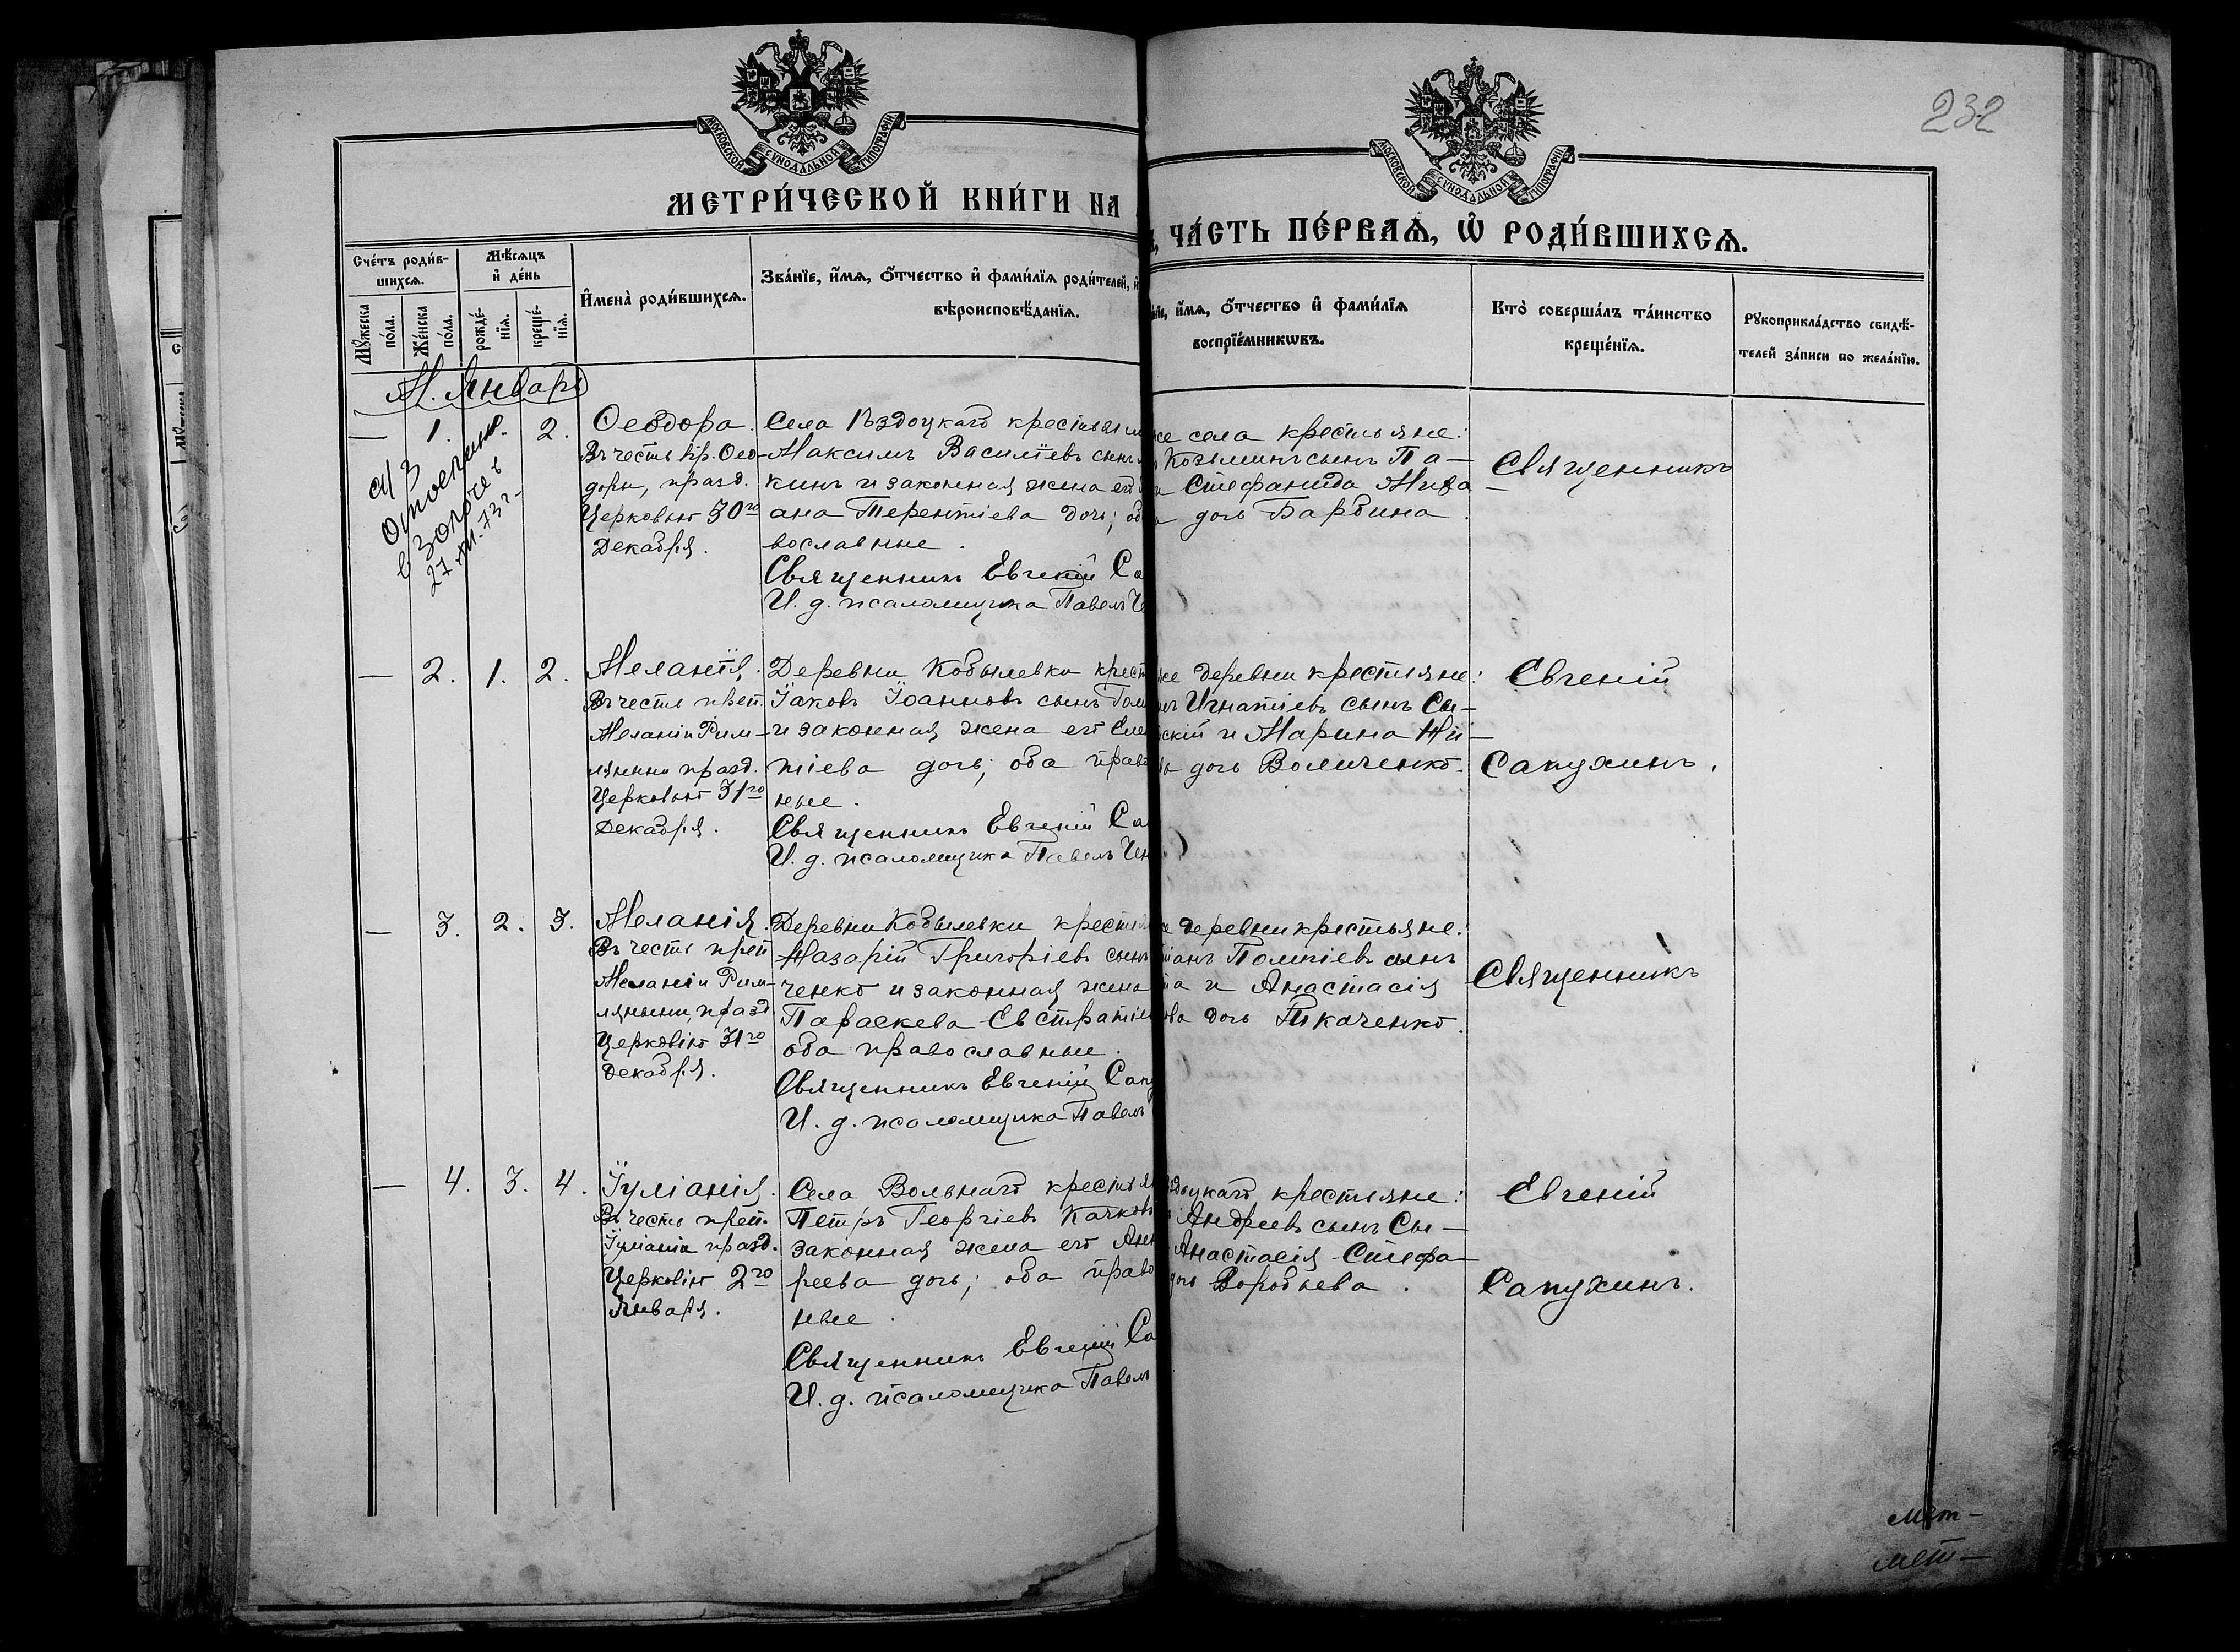 232
МОСКОВСКОЙ СѴНОДАЛЬНОЙ ТИПОГРАФІИ
МОСКОВСКОЙ СѴНОДАЛЬНОЙ ТИПОГРАФІИ
МЕТРИ́ЧЕСКОЙ КНИ́ГИ НА
ЧА́СТЬ ПЕ́РВАѦ, Ѡ РОДИ́ВШИХСѦ.
Сче́тъ роди́в-
шихсѧ.
Мѣ́сѧцъ
и҆ де́нь
Мꙋ́жеска
по́ла.
Же́нска
по́ла.
рожде́-
нїѧ.
креще́-
нїѧ.
И҆мена̀ роди́вшихсѧ.
Зва́нїе, и҆́мѧ, ѻ҆́тчество и҆ фами́лїѧ роди́телей, и҆
вѣроисповѣ́данїѧ.
и҆́мѧ, ѻ҆́тчество и҆ фами́лїѧ
воспрїе́мникѡвъ.
Кто̀ соверша́лъ та́инство
креще́нїѧ.
Рꙋкоприкла́дство свидѣ́-
телей за́писи по жела́нїю.
М. Январь
— 1. 2.
а/з
в Золочев
Ѳеодора.
Въ честь пр. Ѳео-
доры, празд.
Церковью 30го
Декабря.
Села
Максимъ Василіевъ сынъ
кинъ и законная жена его
ана Терентіева дочь;
вославные.
Священникъ Евгеній Са
И. д. псаломщика Павелъ Че
села крестьяне:
Козьминъ сынъ Па-
Стефанида
дочь Барбина.
Священникъ
— 2. 1. 2.
Меланія.
Въ честь преп.
Меланіи Рим-
ляныни празд.
Церковью 31го
Декабря.
Деревни Кобылевки крест
Іаковъ Іоанновъ сынъ
и законная жена его
тіева дочь; оба право
ные.
Священникъ Евгеній Са
И. д. псаломщика Павелъ Чен
же деревни крестьяне:
Игнатіевъ сынъ Сы-
скій и Марина
дочь Воличенко.
Евгеній
Сапухинъ.
— 3. 2. 3.
Меланія.
Въ честь преп.
Меланіи Рим-
ляныни, празд.
Церковію 31го
Декабря.
Деревни Кобылевки крестья
Назарій Григоріевъ сынъ
ченко и законная жена
Параскева Евстратіе
оба православные.
Священникъ Евгеній Сапу
И. д. псаломщика Павелъ
деревни крестьяне:
сынъ
и Анастасія
ова дочь Ткаченко.
Священникъ
— 4. 3. 4.
Іуліанія.
Въ честь преп.
Іуліаніи празд.
Церковію 2го
Января.
Села Вольнаго крестьян
Петръ Георгіевъ Качковъ
законная жена его Анн
реева дочь; оба право
ные.
Священникъ Евгеній Са
И. д. псаломщика Павелъ
крестьяне:
Андреевъ сынъ Сы-
Анастасія Стефа-
дочь Воробьева.
Евгеній
Сапухинъ.
мет-
мет-